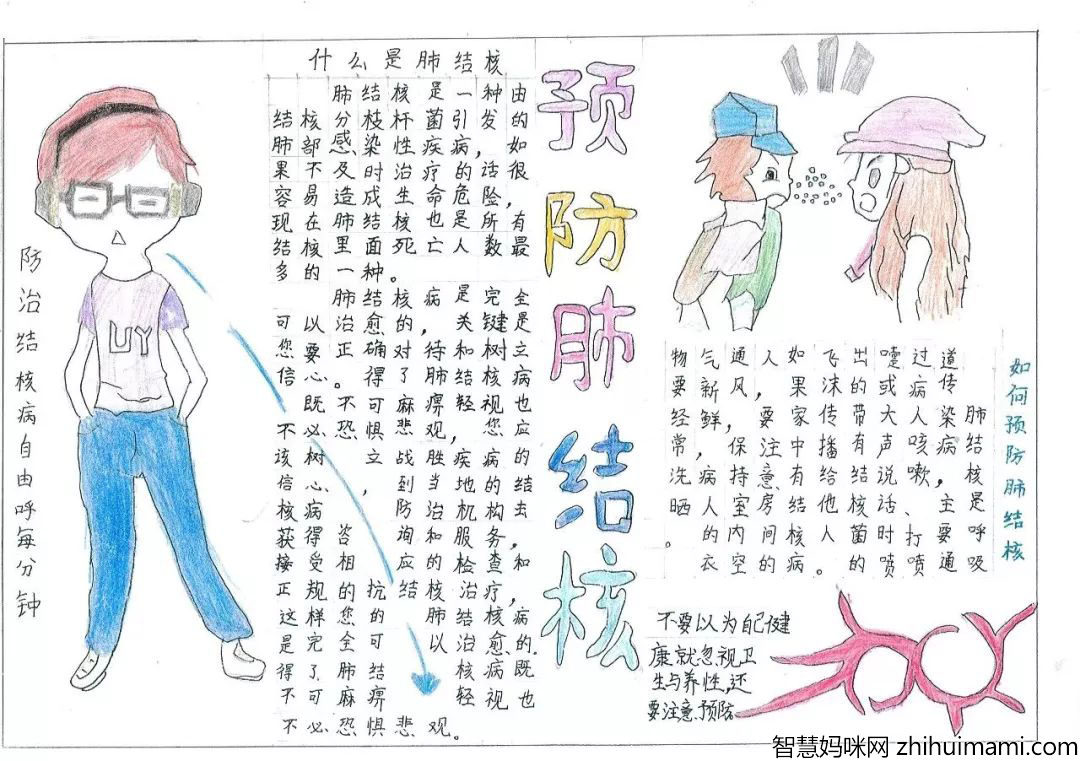 什么是肺结核
肺结核是一种由
结核分枝杆菌引发的
肺部感染性疾病，如
果不及时治疗的话很
容易造成生命危险，
现在肺结核也是所有
结核里面死亡人数最
多的一种。
肺结核病是完全
可以治愈的，关键是
您要正确对待和树立
信心。得了肺结核病
既不可麻痹轻视也
不必恐惧悲观，您应
该树立战胜疾病的
信心，到当地的结
核病防治机构去
获得咨询和服务，
接受相应的检查和
正规的抗结核治疗，
这样您的肺结核病
是完全可以治愈的.
得了肺结核病既
不可麻痹轻视也
不必恐惧悲观。
预防肺结核
防治结核病自由呼每分钟
UY
如何预防肺结核
肺结核是呼吸
道传染病，主要通
过病人咳嗽、打喷
嚏或大声说话时喷
出的带有结核菌的
飞沫传播给他人。
如果家中有结核病
人，要注意房间的
通风，保持室内空
气新鲜，病人的衣
物要经常洗晒。
不要以为自己健
康就忽视卫
生与养性,还
要注意预防
智慧妈咪网 zhihuimami.com